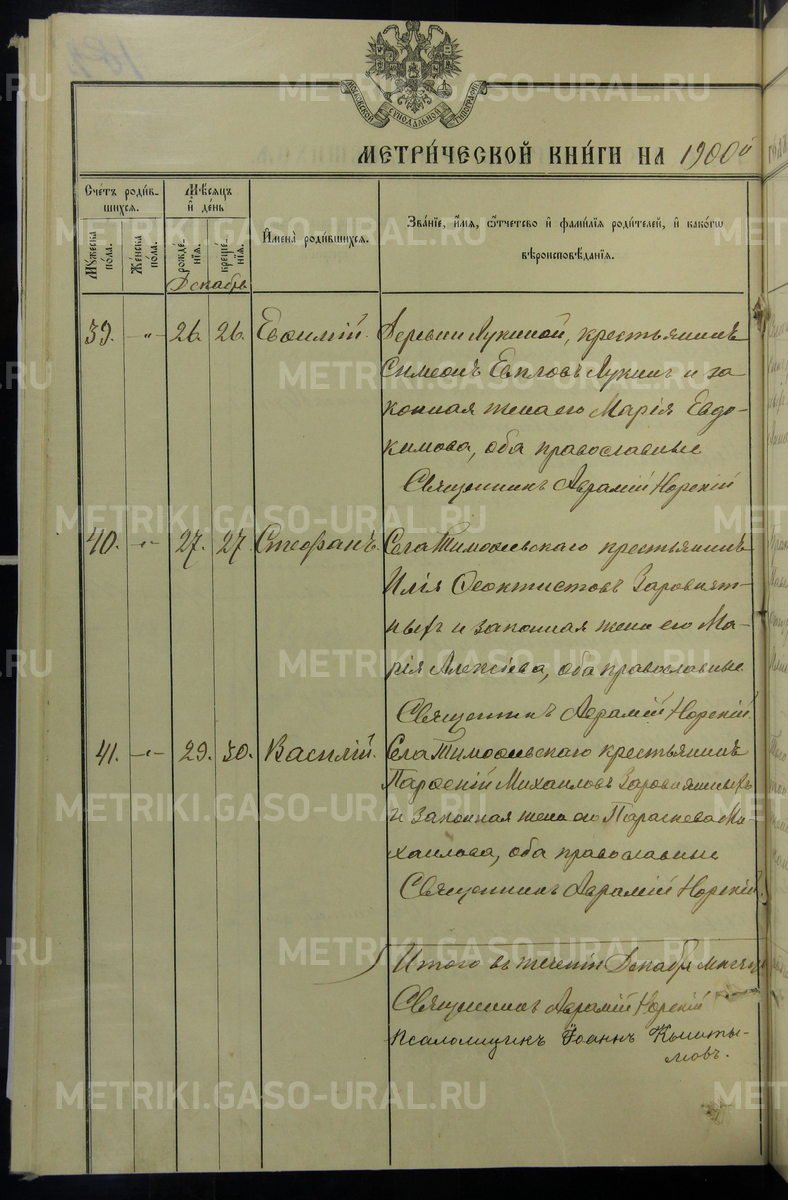 МОСКОВСКОЙ СѴНОДАЛЬНОЙ ТИПОГРАФІИ
МЕТРИ́ЧЕСКОЙ КНИ́ГИ НА 1900й
Сче́тъ роди́в-
шихся.
Мѣ́сяцъ
и҆ де́нь
Му́жеска
по́ла.
Же́нска
по́ла.
рожде́-
нїѧ.
креще́-
нїѧ.
Декабрь
И҆мена̀ роди́вшихся.
Зва́нїе, и҆́мѧ, ѻ҆́тчество и҆ фами́лїѧ роди́телей, и҆ какѡ́гѡ
вѣроисповѣ́данїѧ.
39. -"- 26. 26. Евѳимій. Деревни Лукиной, крестьянинъ
Симеонъ Евпловъ Лукинъ и за-
конная жена его Марія Евдо-
кимова, оба православные
Священникъ Аврамій Норскій
40. -"- 27. 27. Стефанъ. Села Тимоѳеевскаго крестьянинъ
Илія Ѳеоктистовъ
и законная жена его Ма-
рія Алексіева, оба православные
Священникъ Аврамій Норскій
41. -"- 29. 30. Василій. Села Тимоѳеевскаго крестьянинъ
Парѳеній Михаиловъ
и законная жена его Параскева Ми-
хаилова, оба православные
Священникъ Аврамій Норскій.
Итого въ теченіи Декабря месяца
Священникъ Аврамій Норскій
Псаломщикъ Іоаннъ
METRIKI.GASO-URAL.RU